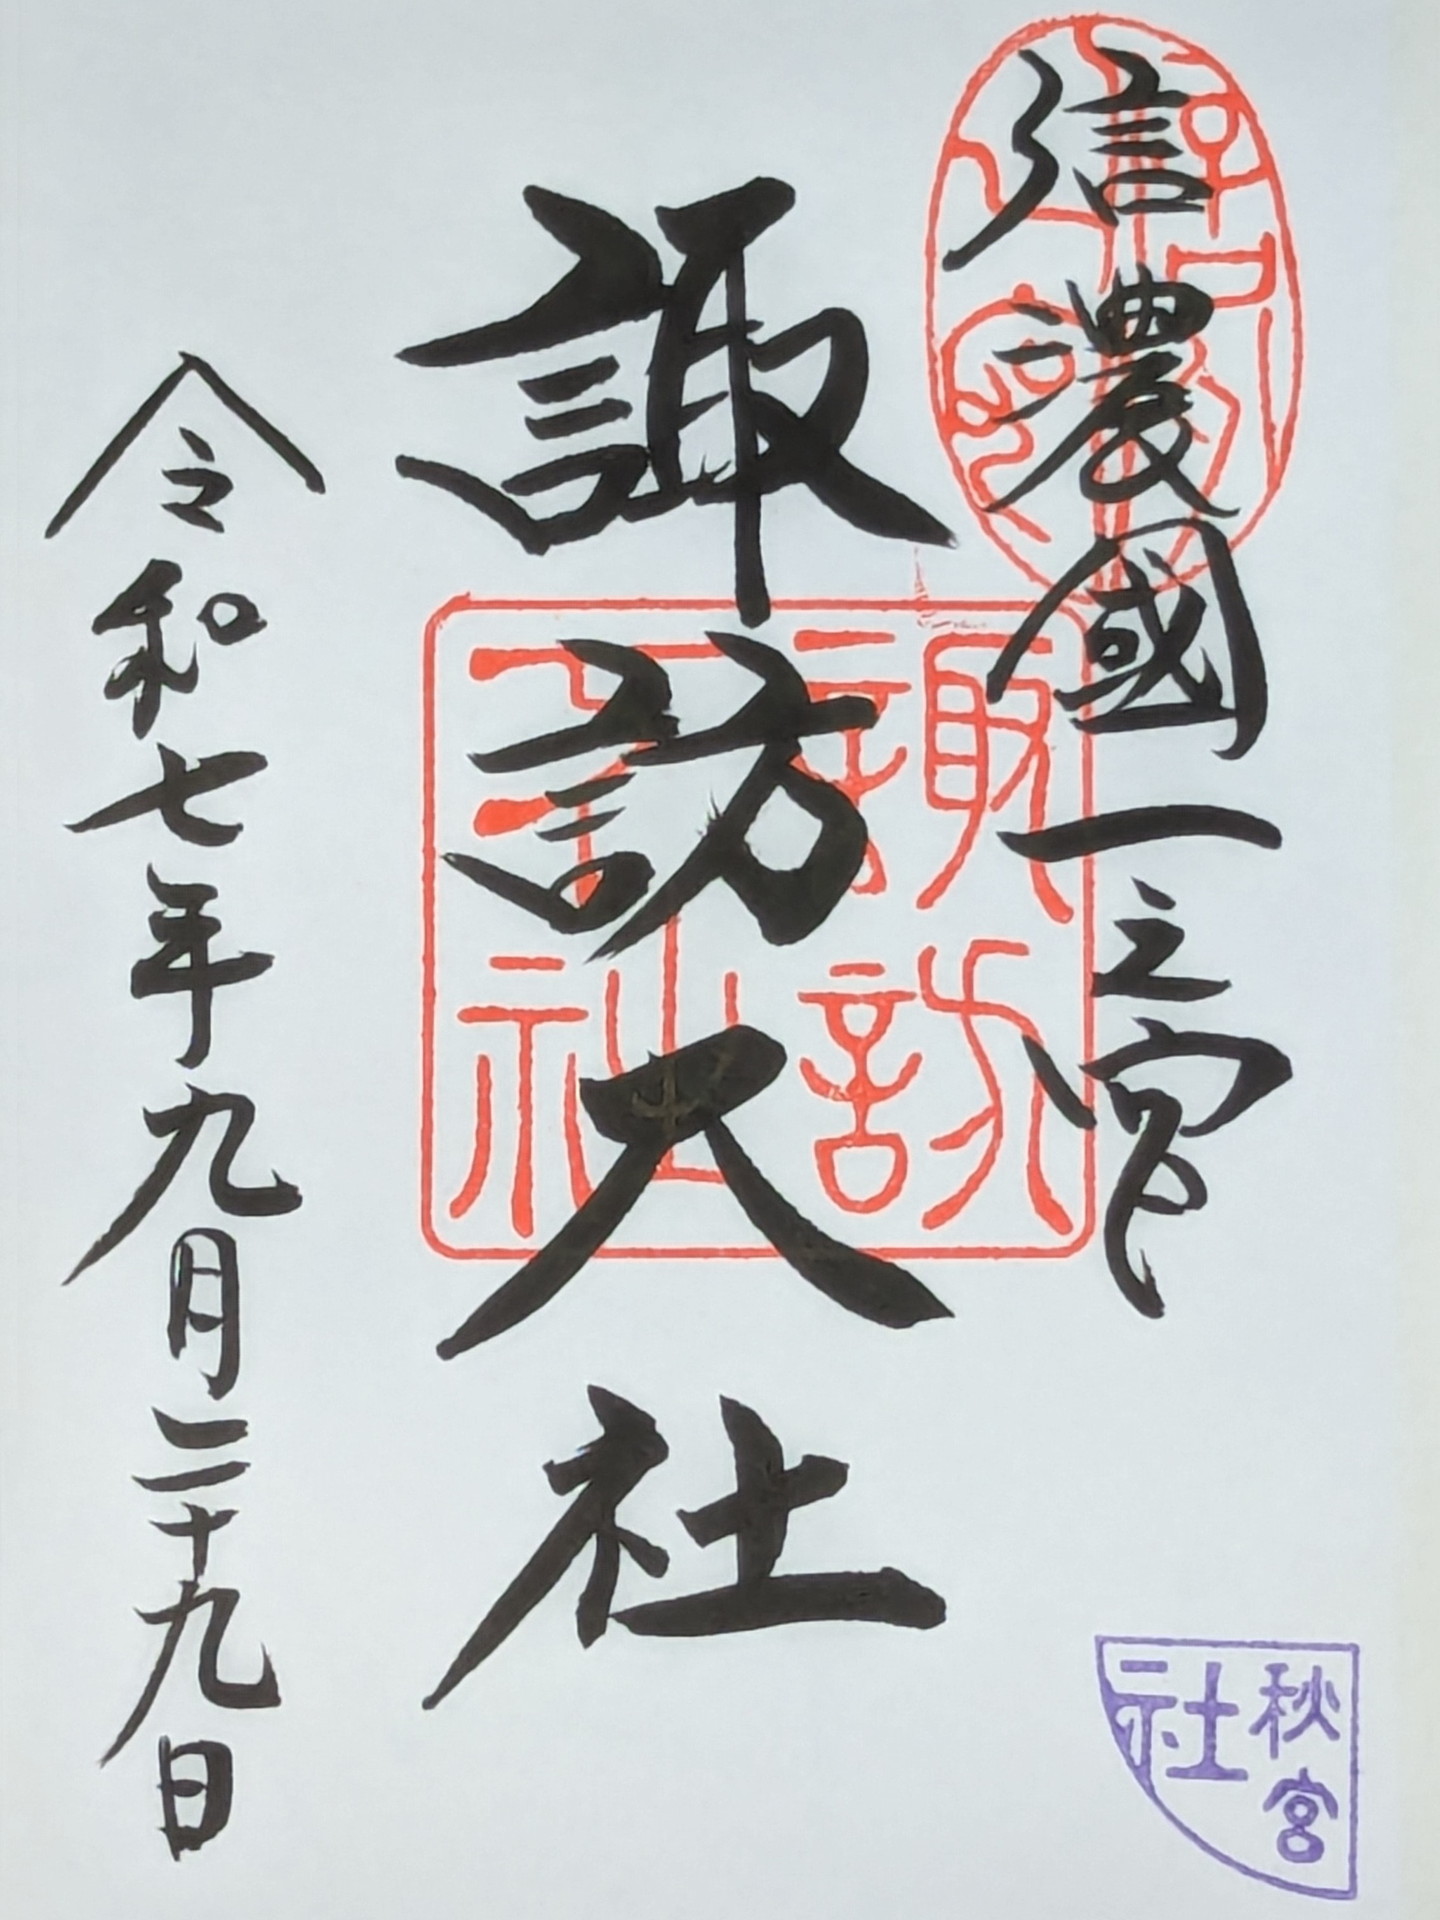 信濃國一之宮
諏訪大社
令和七年九月二十九日
諏訪
大社
秋宮
社